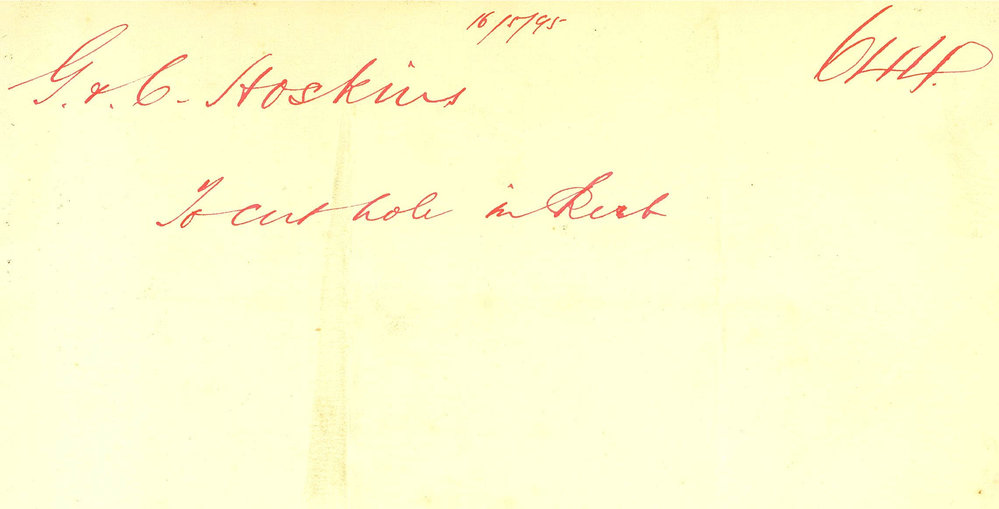 16/5/95
644.
G. & C. Hoskins
To cut hole in Kerb